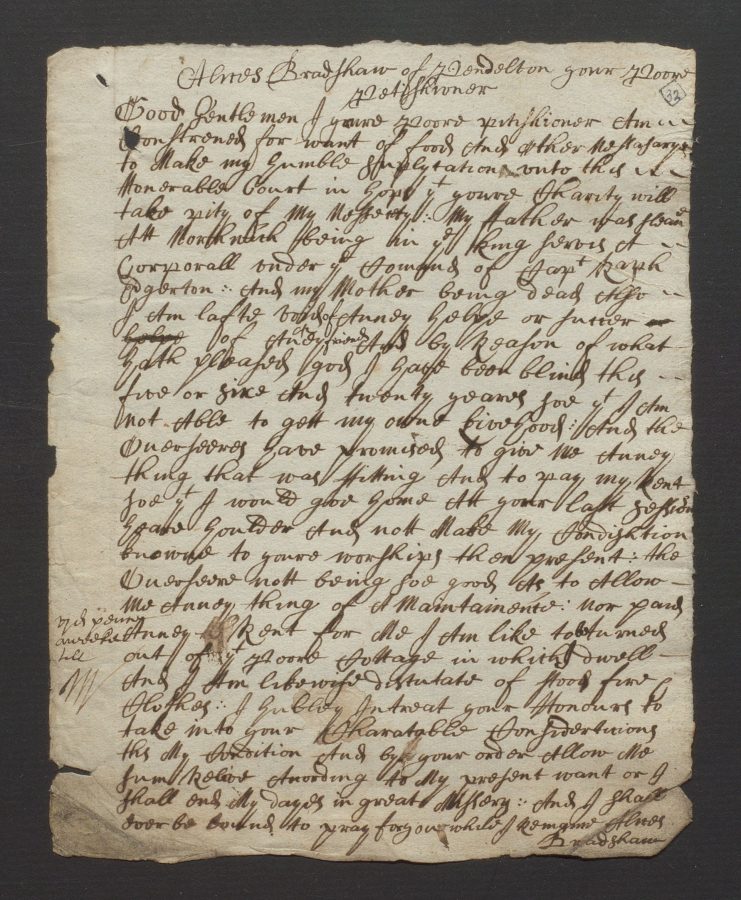 Alices Bradshaw of Pendelton your Poore
Petishioner
32
Good Gentlemen I youre Poore pitishioner Am
Constrened for want of food And other Nessasaryes
to Make my humble Supplycation unto this
Honerable Court in hope yt youre Charity will
take pity of My Nessecety: My ffather was sleane
Att Northwich being in ye King servis A
Corporall under ye Comand of Capt Raph
Edgerton: And my Mother being dead Allso
I Am lafte voyd of Anney helpe or succer
of Aney friend And by Reason of what
hath pleased god I have been blind this
five or sixe And twenty yeares soe yt I Am
Not Able to gett my owne livehood: And the
Overseeres have promised to give Me Anney
thing that was ffitting And to pay my Rent
soe yt I would goe home Att your last Session
heare houlden And nott Make My Condishtion
knowne to youre worships then present: the
Overseere nott being soe good As to Allow
Me Anney thing of A Maintainence: nor paid
Anney Rent for Me I Am like to be turned
out of ye Poore Cottage in which I dwell
And I Am likewise distutate of ffood fire
Clothes: I humbley Intreat your Honours to
take into your Charatable Considerations
this My Condition And by your order Allow Me
sum Releve Acording to My present want or I
shall end My dayes in great Missery: And I shall
ever be bound to pray for you while I Remaine Alices
Bradshaw
penny
a weeke
till